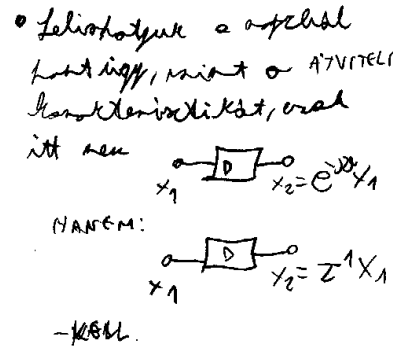 • Felírhatjuk a
úgy, mint a ÁTVITELI
karakterisztikát, csak
itt nem
D
x₁ x₂ = e^-jϑ x₁
HANEM:
D
x₁ x₂ = z^-1 x₁
- KELL.